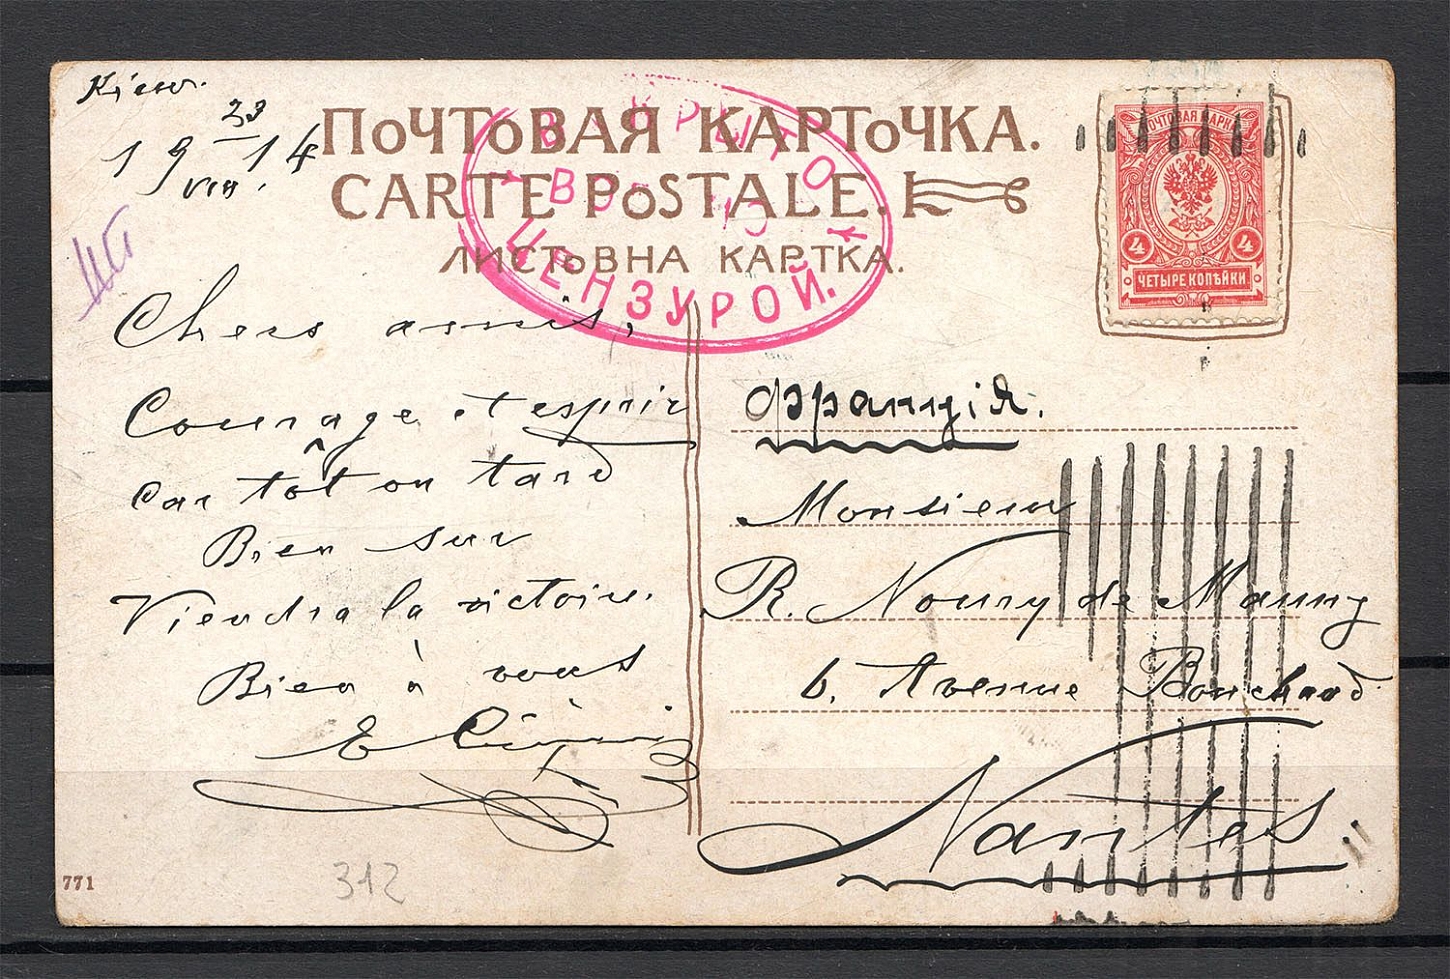 Kiew.
19 23/VIII. 14
ПОЧТОВАЯ КАРТОЧКА.
CARTE POSTALE.
ЛИСТОВНА КАРТКА.
ВСКРЫТО
ЦЕНЗУРОЙ.
ПОЧТОВАЯ МАРКА
4 4
ЧЕТЫРЕ КОПѢЙКИ
Chers amis,
Courage et espoir
Car tôt ou tard
Bien sur
Viendra la victoire.
Bien à vous
E
Франція.
Monsieur
R. Noury de Mauny
6. Avenue Bouchaud
Nantes.
771
312